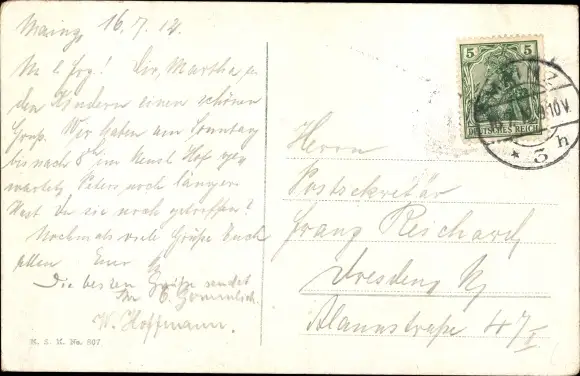 Mainz, 16.7.12.
M. l. Frz! Dir, Martha u.
den Kindern einen schönen
Gruß. Wir haben am Sonntag
bis nach 8h im Hof
wartet, Peters noch länger.
Hast Du sie noch getroffen?
Nochmals viele Grüße Euch
allen Euer
Die besten Grüße sendet
W. Hoffmann.
M. S. M. No. 807
5 5
DEUTSCHES REICH
MAINZ
10V.
* 3 h
Herrn
Postsekretär
Franz Reichard
Dresden N
Alaunstraße 47 I